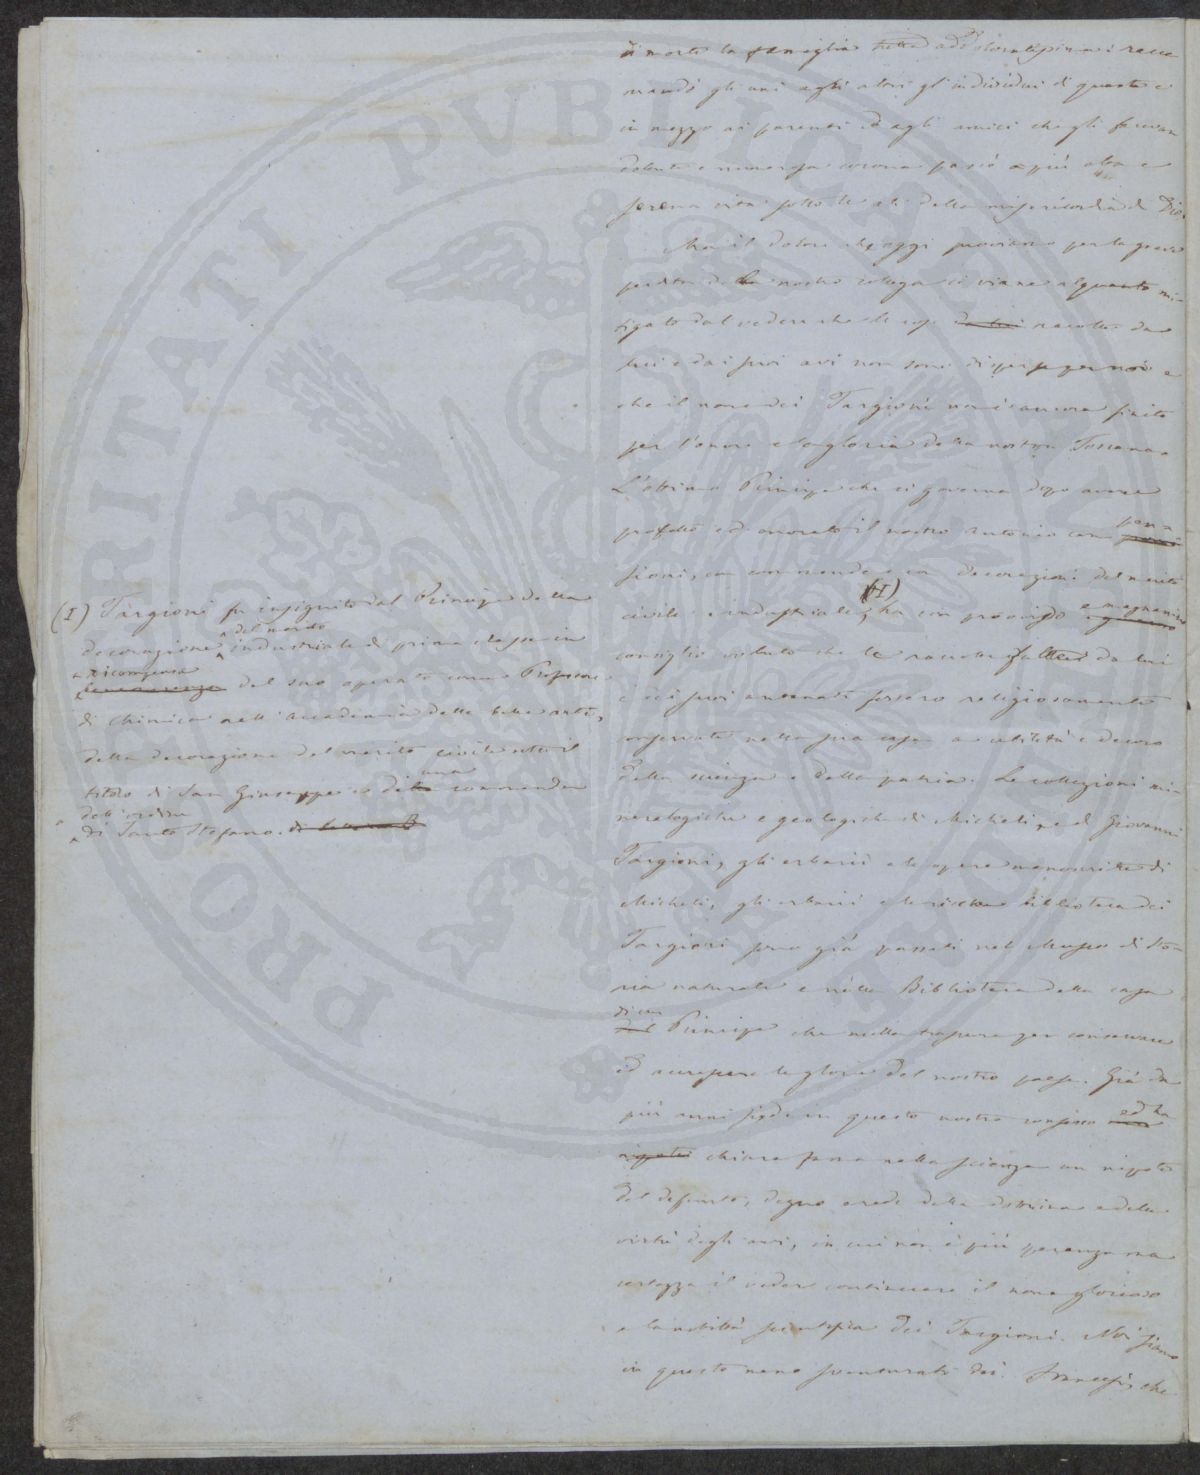 di morte la famiglia tutta addoloratissima: racco
mandò gli uni agli altri gl'individui di questa e
in mezzo ai parenti ed agli amici che gli facevan
dolente e numerosa corona passò a più alta e
serena vita sotto le ali della misericordia di Dio.
Ma il dolore che oggi proviamo per la grave
perdita del nostro collega ci viene alquanto mi-
tigato dal vedere che le cose da lui raccolte da
lui e dai suoi avi non sono disperse per noi e
che il nome dei Targioni non è ancora finito
per l'onore e la gloria della nostra Toscana.
L'ottimo Principe che ci governa dopo avere
protetto ed onorato il nostro Antonio con pen-
sioni, con commende e con decorazioni del merito
civile e industriale, (I) ha con provvido e magnanimo
consiglio voluto che le raccolte fatte da lui
e dai suoi antenati fossero religiosamente
conservate nella sua casa a utilità e decoro
della scienza e della patria. Le collezioni mi-
neralogiche e geologiche di Micheli, e di Giovanni
Targioni, gli erbarii e le opere manoscritte di
Micheli, gli erbarii e la ricca biblioteca dei
Targioni sono già passati nel Museo di Sto-
ria naturale e nella Biblioteca della casa
di un Principe che nulla trascura per conservare
ed accrescere le glorie del nostro paese. Già da
più anni siede in questo nostro consesso ed ha
chiara fama nella scienza un nipote
del defunto, degno erede della dottrina e delle
virtù degli avi, in cui non è più speranza ma
certezza il vedere continuare il nome glorioso
e la nobiltà scientifica dei Targioni. Noi siamo
in questo meno sventurati dei Francesi, che
(I) Targioni fu insignito dal Principe della
decorazione del merito industriale di prima classe in
ricompensa del suo operato come Professore
di Chimica nell'Accademia delle belle arti,
della decorazione del merito civile sotto il
titolo di San Giuseppe e di una commenda
dell'ordine
di Santo Stefano.
PROSPERITATI PVBLICAE AVGENDAE